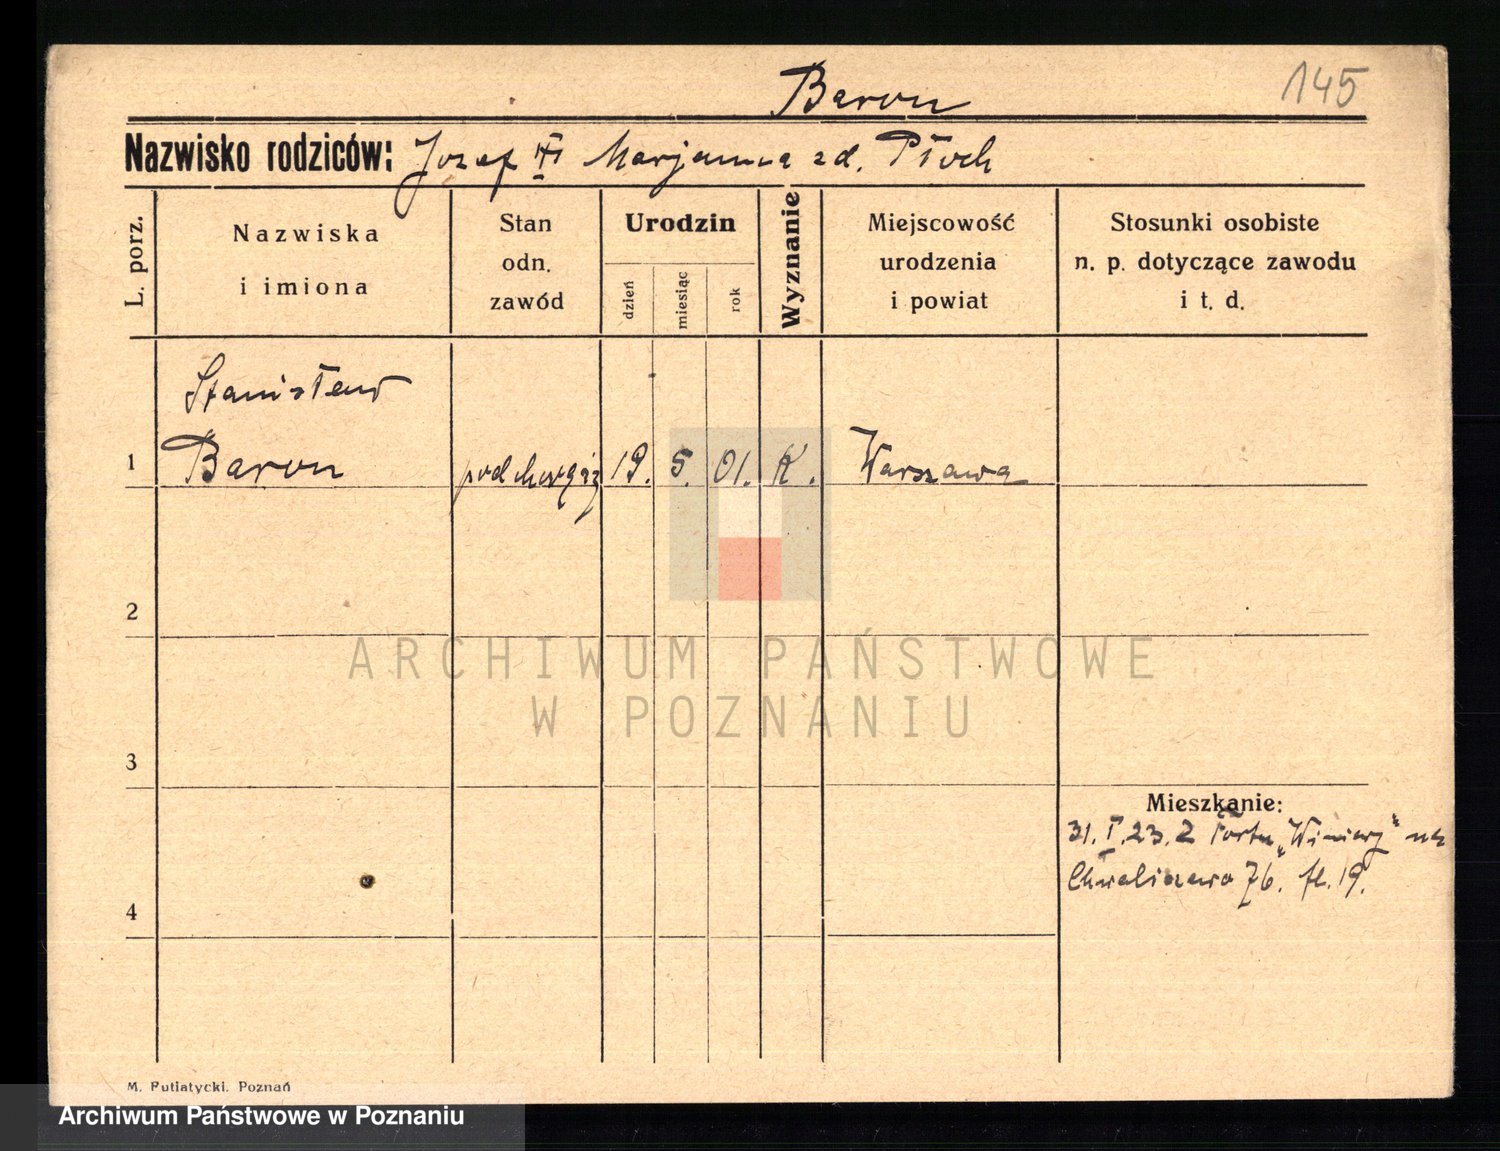 Baron
145
Nazwisko rodziców: Jozef Marjanna zd. Płoch
L. porz.
Nazwiska
i imiona
Stan
odn.
zawód
Urodzin
dzień
miesiąc
rok
Wyznanie
Miejscowość
urodzenia
i powiat
Stosunki osobiste
n. p. dotyczące zawodu
i t. d.
Stanisław
1 Baron podchorąż 19. 5. 01. K. Warszawa
2
ARCHIWUM PAŃSTWOWE
W POZNANIU
3
Mieszkanie:
31. I. 23. Z Fortu „Winiary" na
Chwaliszewo 76. 19.
4
M. Putiatycki. Poznań
Archiwum Państwowe w Poznaniu